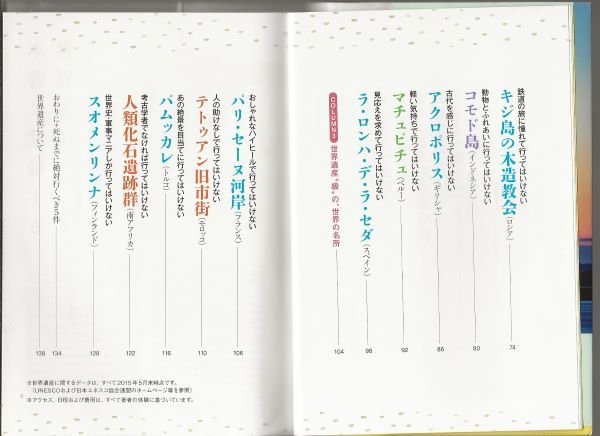 鉄道の旅に憧れて行ってはいけない
キジ島の木造教会(ロシア) 74
動物とふれあいに行ってはいけない
コモド島(インドネシア) 80
古代を感じに行ってはいけない
アクロポリス(ギリシャ) 86
軽い気持ちで行ってはいけない
マチュピチュ(ペルー) 92
見応えを求めて行ってはいけない
ラ・ロンハ・デ・ラ・セダ(スペイン) 98
COLUMN3 世界遺産“級”の、世界の名所 104
おしゃれなハイヒールで行ってはいけない
パリ・セーヌ河岸(フランス) 106
人の助けなしで行ってはいけない
テトゥアン旧市街(モロッコ) 110
あの絶景を目当てに行ってはいけない
パムッカレ(トルコ) 116
考古学者でなければ行ってはいけない
人類化石遺跡群(南アフリカ) 122
世界史・軍事マニアしか行ってはいけない
スオメンリンナ(フィンランド) 128
おわりに+死ぬまでに絶対行くべき5件 134
世界遺産について 138
※世界遺産に関するデータは、すべて2015年5月末時点です。
(UNESCOおよび日本ユネスコ協会連盟のホームページ等を参照)
※アクセス、日程および費用は、すべて著者の体験に基づいています。